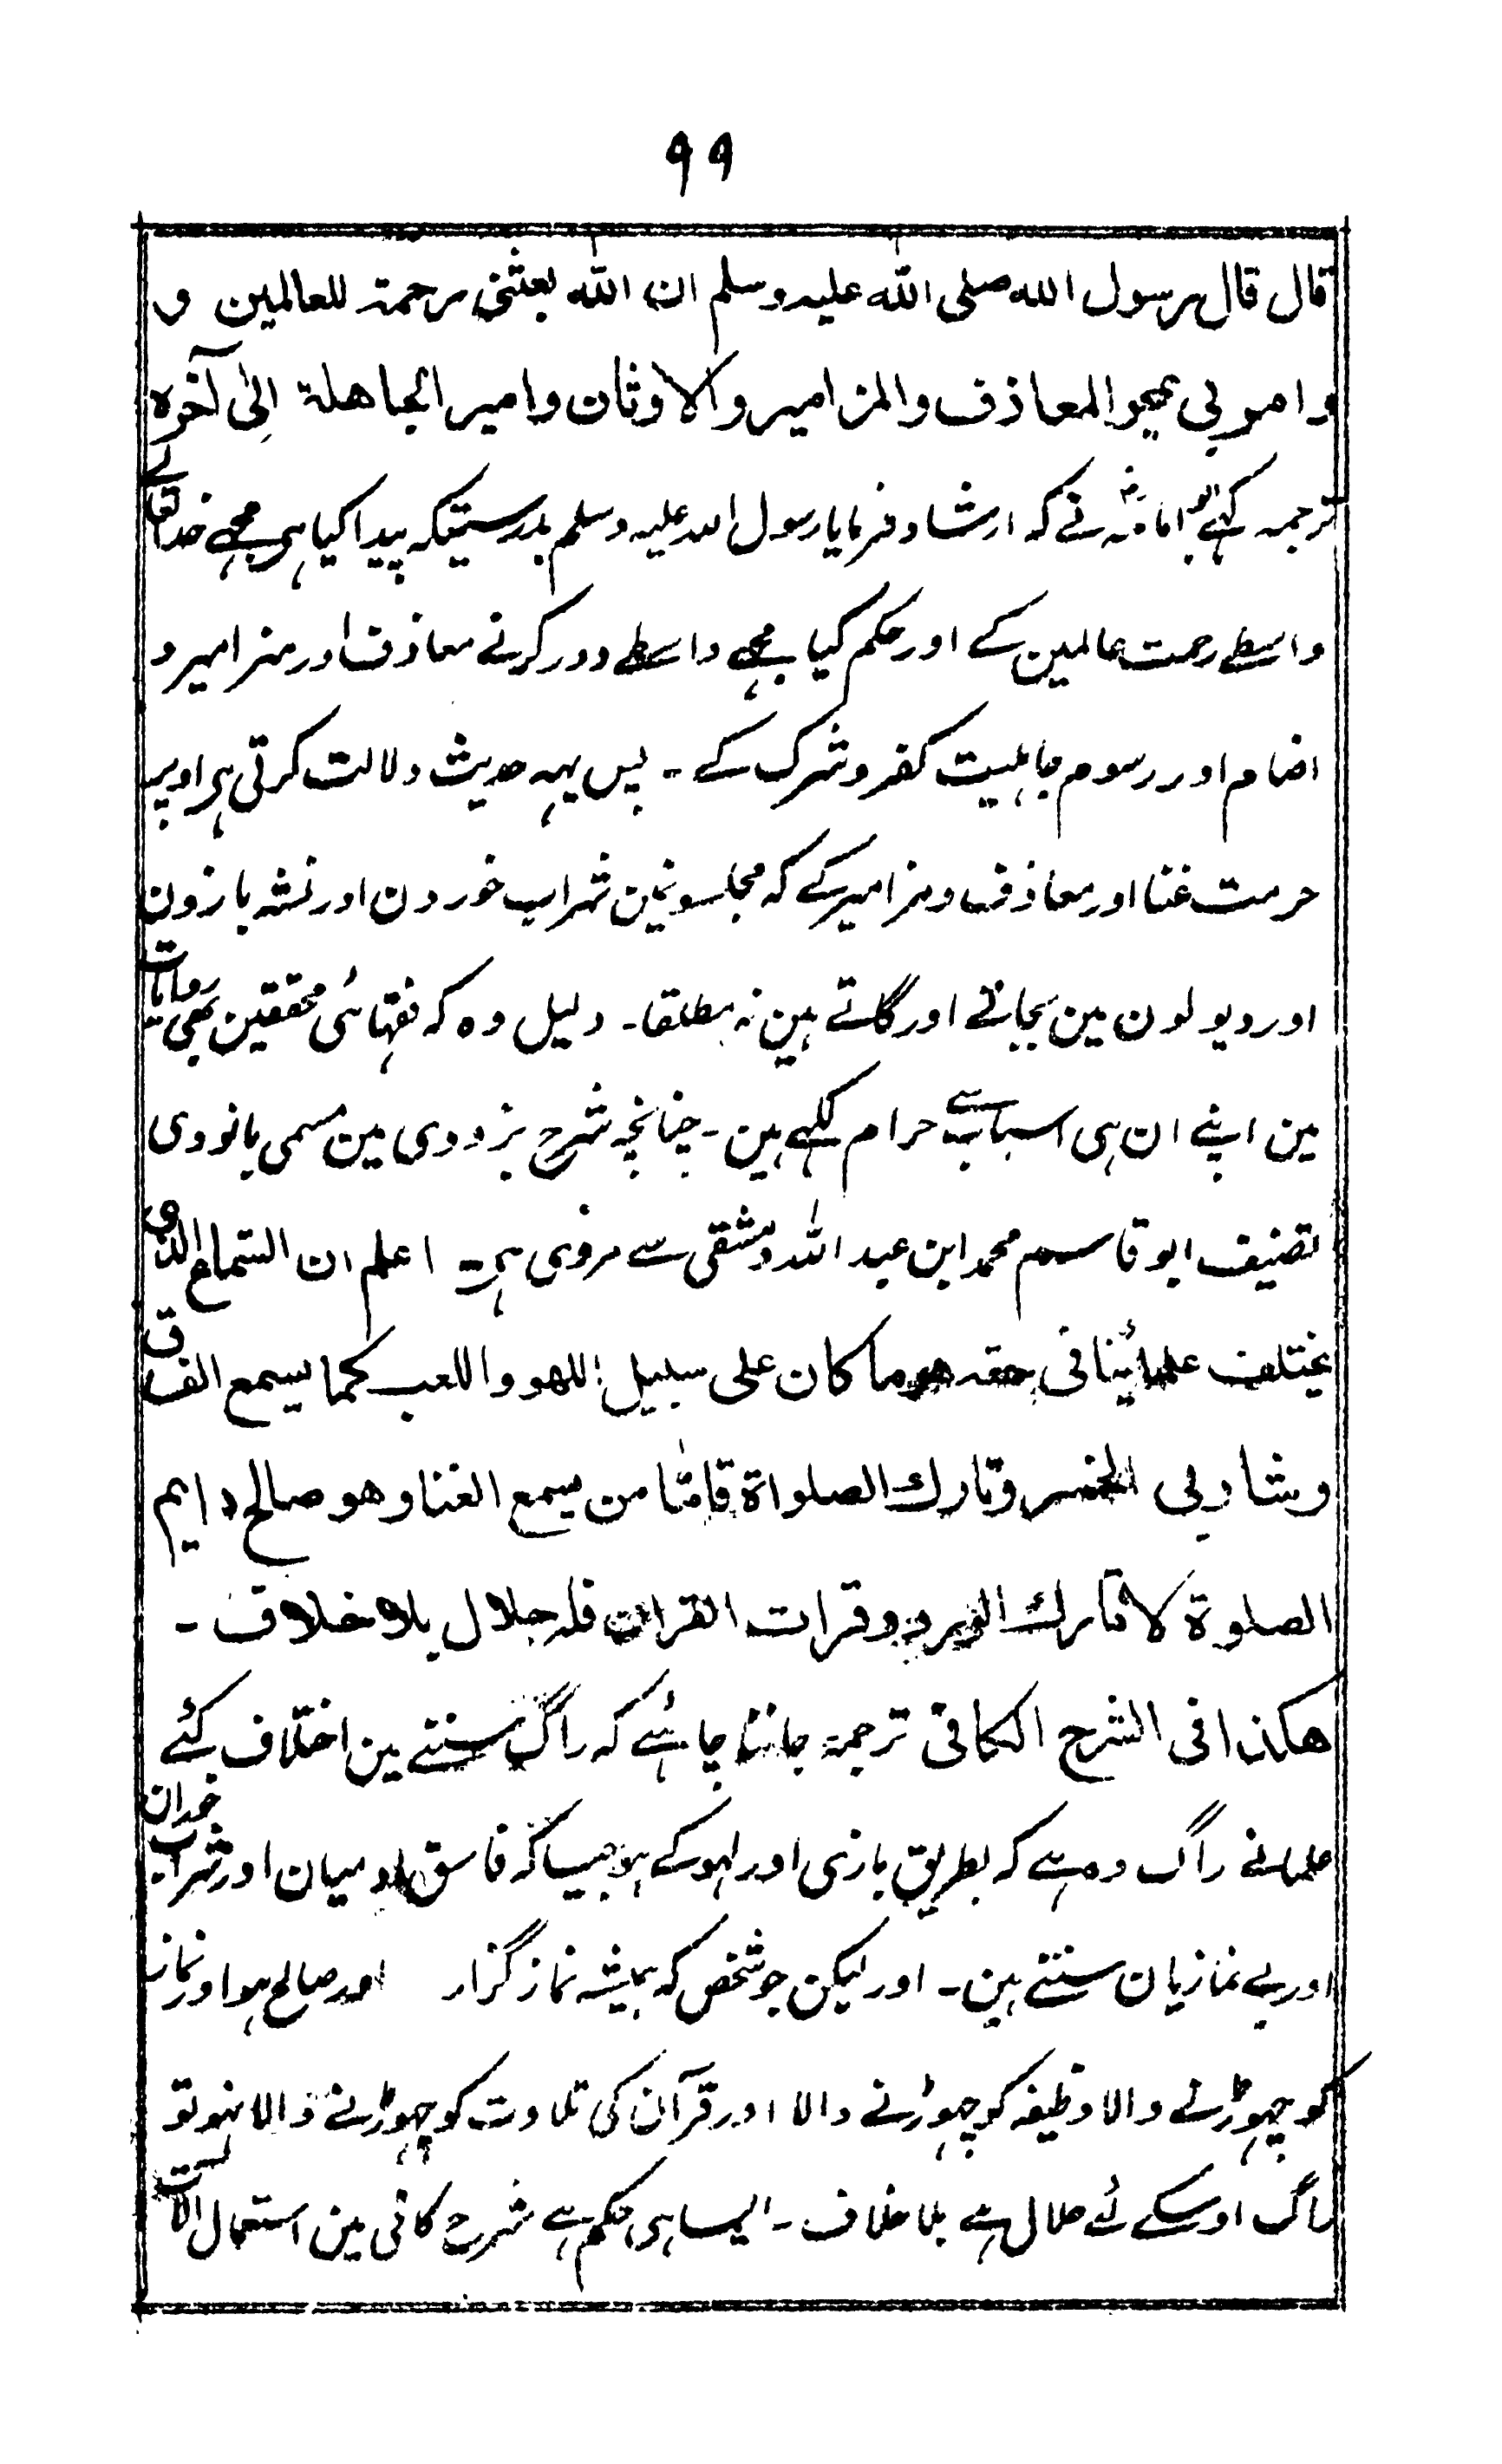 ۹۹
قال قال رسول الله صلى الله عليه وسلم ان الله بعثنى رحمة للعالمين و
وامرنى بمحو المعاذف والمزامير والاوثان وامير الجاهلة الىٰ آخره
ترجمہ کہے ابو امامہؓ نے کہ ارشاد فرمایا رسول اللہ علیہ وسلم بدرستیکہ پیدا کیا ہی مجہے خدا تعالے
واسطے رحمت عالمین کے اور حکم کیا مجہے واسطے دور کرنے معاذف اور مزامیر و
اضام اور رسوم جاہلیت کفر و شرک کے ۔ پس یہہ حدیث دلالت کرتی ہی اوپر
حرمت غنا اور معاذف ومزامیر کے کہ مجلسونمین شراب خوردن اور نشہ بازون
اور دیولون مین بجاتے اور گاتے ہین نہ مطلقا ۔ دلیل وہ کہ فقہائی محققین بھی روایات
مین اپنے ان ہی اسباب سے حرام لکہے ہین ۔ چنانچہ شرح بزودی مین مسمی بانووی
تصنیف ابو قاسم محمد ابن عبد اللہ دمشقی سے مروی ہی ۔ اعلم ان السماع الذی
یختلف علمائنا فی حقه هو ما كان على سبيل اللهو واللعب كما يسمع الفساق
وشاربى الخمر وتارك الصلواة فامّا من يسمع الغنا وهو صالح دايم
الصلوة لا تارك الورد وقرات القران فله حلال بلا خلاف ۔
هكذا فى الشرح الكافى ترجمہ جاننا چاہئے کہ راگ سننے مین اختلاف کئے
علمانے راگ وہ ہے کہ بطریق بازی اور لہو کے ہو جیسا کہ فاسق ادمیان اور شراب خوران
اور بے نمازیان سنتے ہین ۔ اور لیکن جو شخص کہ ہمیشہ نماز گزار اور صالح ہو اور نماز
کو چہوڑنے والا وظیفہ کو چہوڑنے والا اور قرآن کی تلاوت کو چہوڑنے والا نہو تو
راگ اوسکے لئے حلال ہے بلا خلاف ۔ ایسا ہی حکم ہے شرح کافی مین استعمال الات